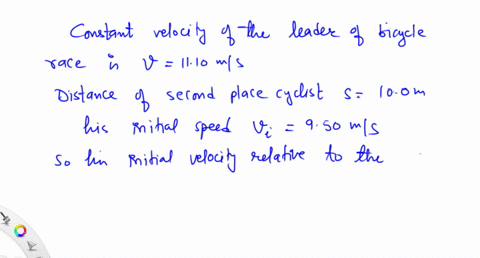 Constant velocity of the leader of bicycle
race is v = 11.10 m/s
Distance of second place cyclist s = 10.0 m
his initial speed vi = 9.50 m/s
So his initial velocity relative to the